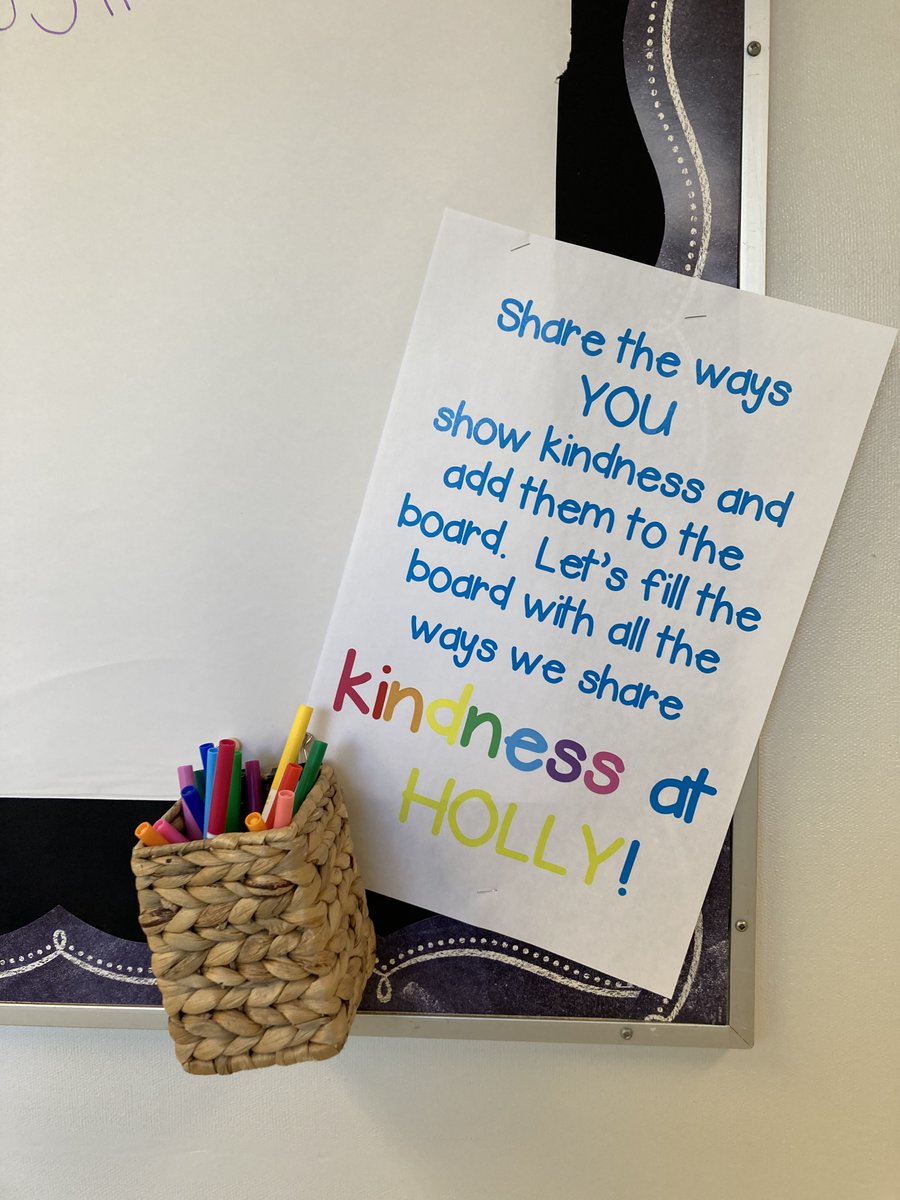 Share the ways
YOU
show kindness and
add them to the
board. Let's fill the
board with all the
ways we share
kindness at
HOLLY!